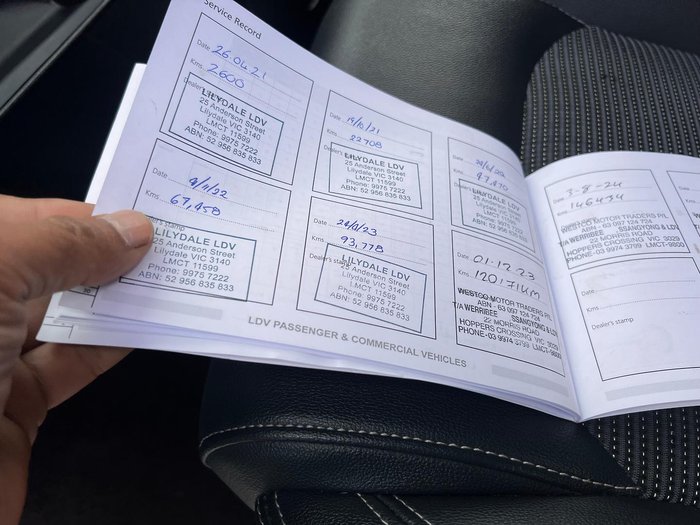 Service Record
Date 26.04.21
Kms 2600
Dealer's
LILYDALE LDV
25 Anderson Street
Lilydale VIC 3140
LMCT 11599
Phone: 9975 7222
ABN: 52 956 835 833
Date 19/10/21
Kms 22708
Dealer's
LILYDALE LDV
25 Anderson Street
Lilydale VIC 3140
LMCT 11599
Phone: 9975 7222
ABN: 52 956 835 833
Date
Kms
Dealer's
LILYDALE LDV
25 Anderson Street
Lilydale VIC 3140
LMCT 11599
Phone: 9975 7222
ABN: 52 956 835 833
Date
Kms
stamp
LILYDALE LDV
25 Anderson Street
Lilydale VIC 3140
LMCT 11599
Phone: 9975 7222
ABN: 52 956 835 833
Date
Kms 93,778
Dealer's
LILYDALE LDV
25 Anderson Street
Lilydale VIC 3140
LMCT 11599
Phone: 9975 7222
ABN: 52 956 835 833
Date 01.12.23
Kms 120,171KM
WESTCO MOTOR TRADERS P/L
ABN - 63 097 124 724
T/A WERRIBEE SSANGYONG & LDV
22 MORRIS ROAD
HOPPERS CROSSING VIC 3029
PHONE-03 9974 3799 LMCT-9800
LDV PASSENGER & COMMERCIAL VEHICLES
Date 3-8-24
Kms 146434
WESTCO MOTOR TRADERS P/L
ABN - 63 097 124 724
T/A WERRIBEE SSANGYONG & LDV
22 MORRIS ROAD
HOPPERS CROSSING VIC 3029
PHONE-03 9974 3799 LMCT-9800
Date
Kms
Dealer's stamp